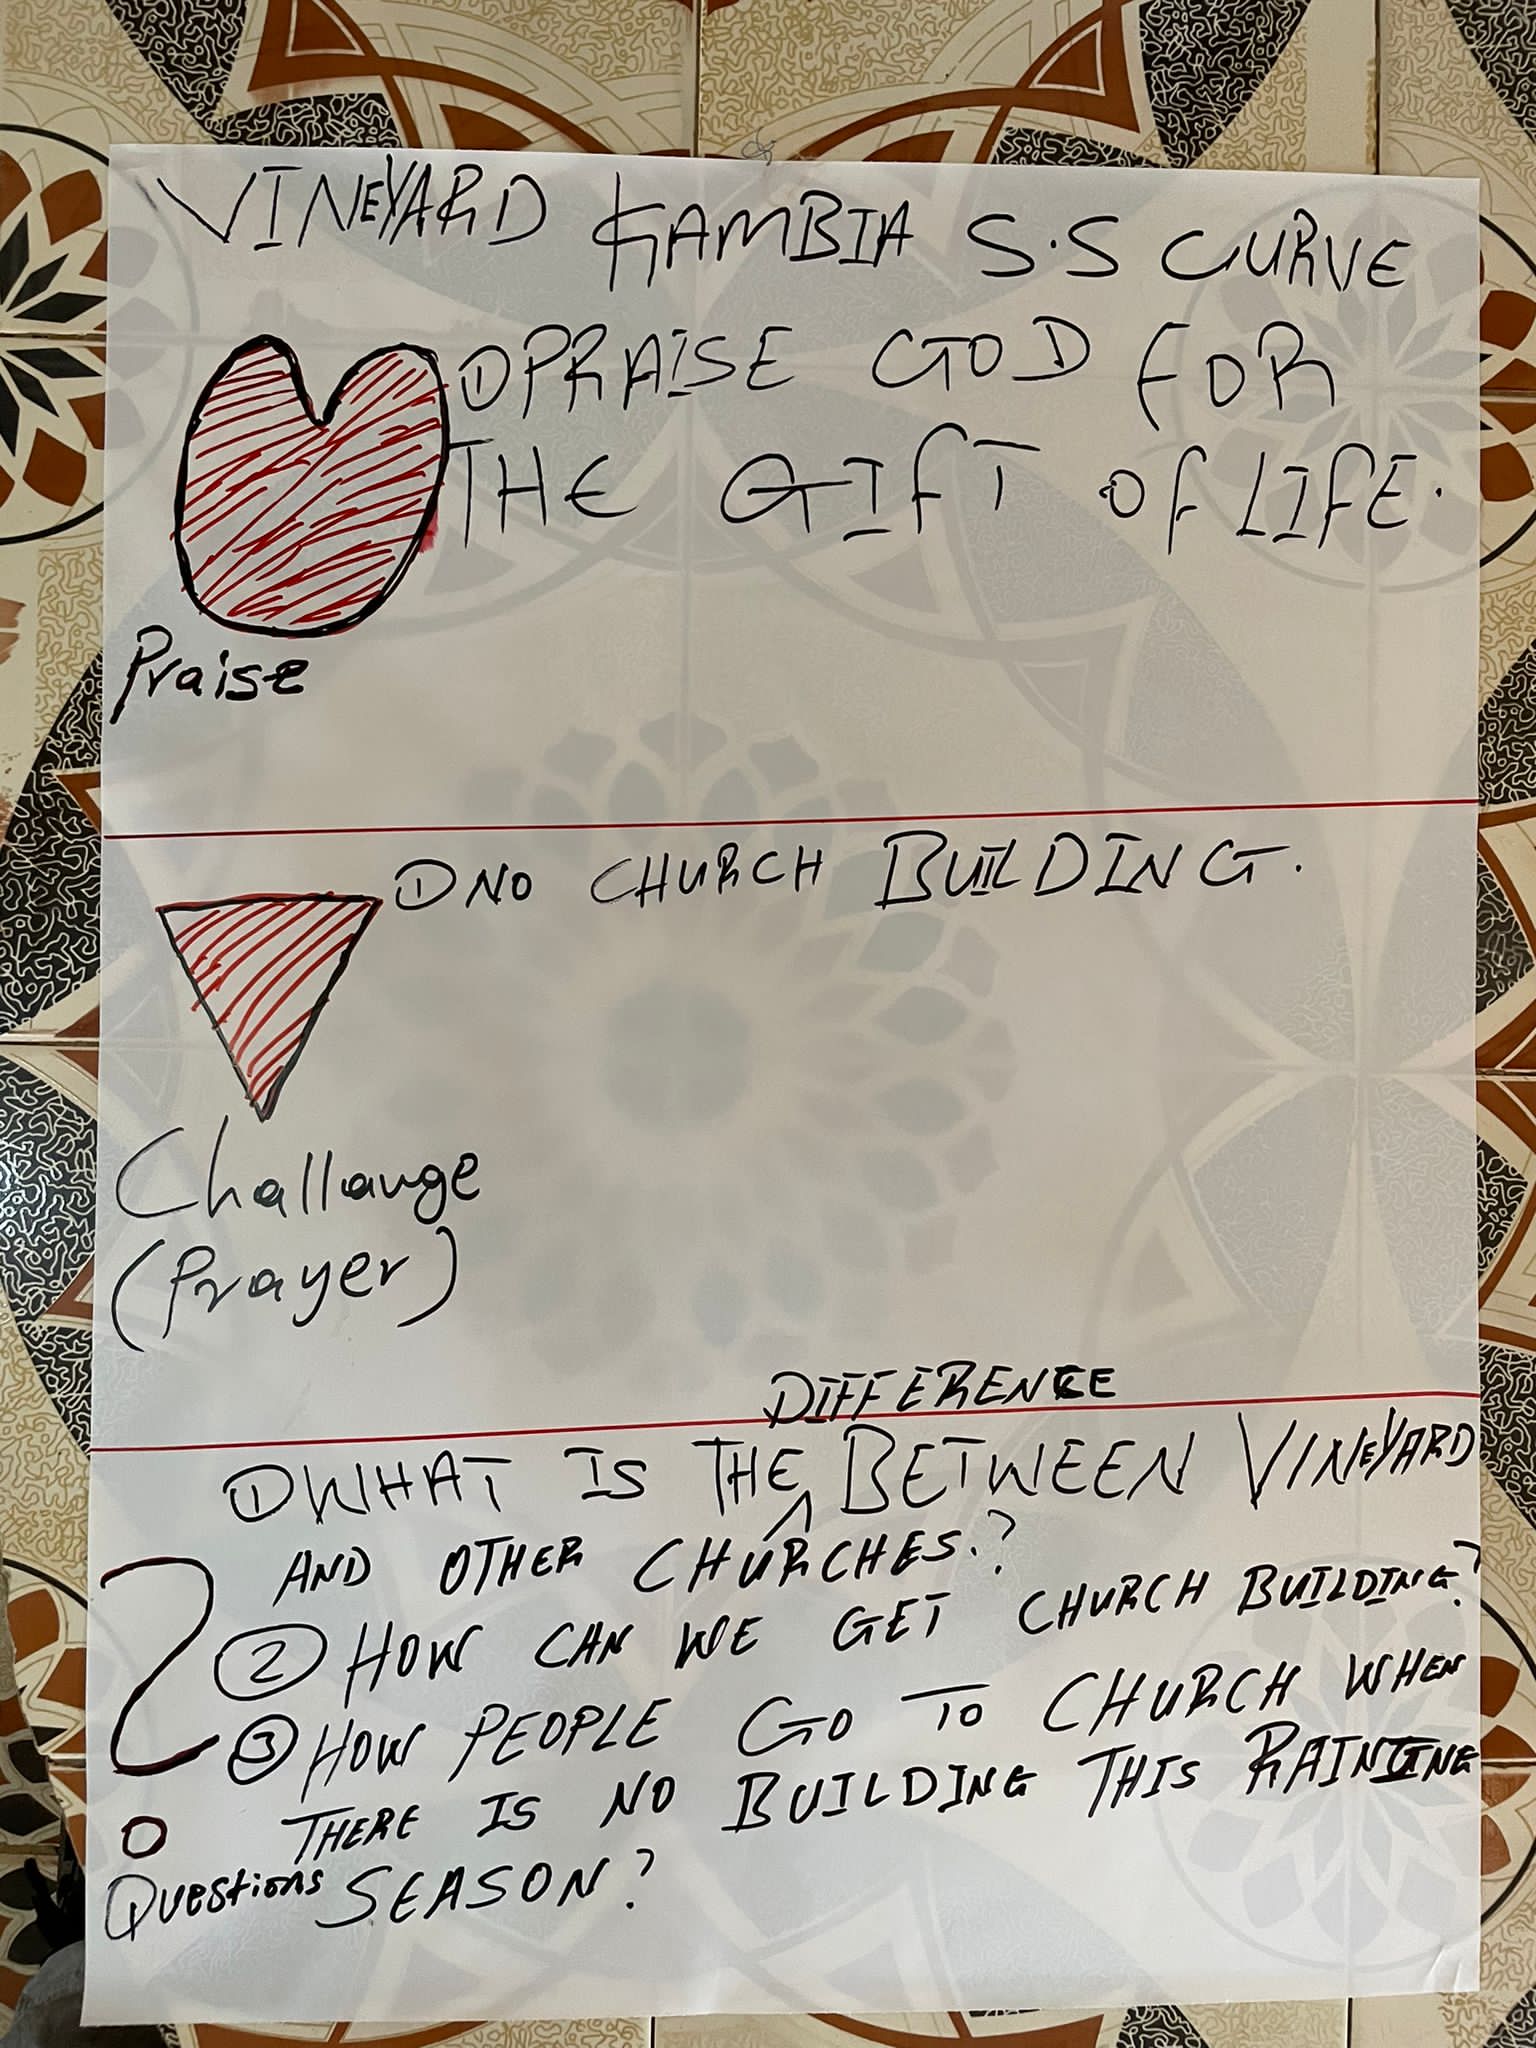 VINEYARD GAMBIA S.S CURVE
① PRAISE GOD FOR
THE GIFT OF LIFE.
Praise
① NO CHURCH BUILDING.
Challange
(Prayer)
DIFFERENCE
① WHAT IS THE ^ BETWEEN VINEYARD
AND OTHER CHURCHES.?
② HOW CAN WE GET CHURCH BUILDING?
③ HOW PEOPLE GO TO CHURCH WHEN
THERE IS NO BUILDING THIS RAINING
SEASON?
Questions